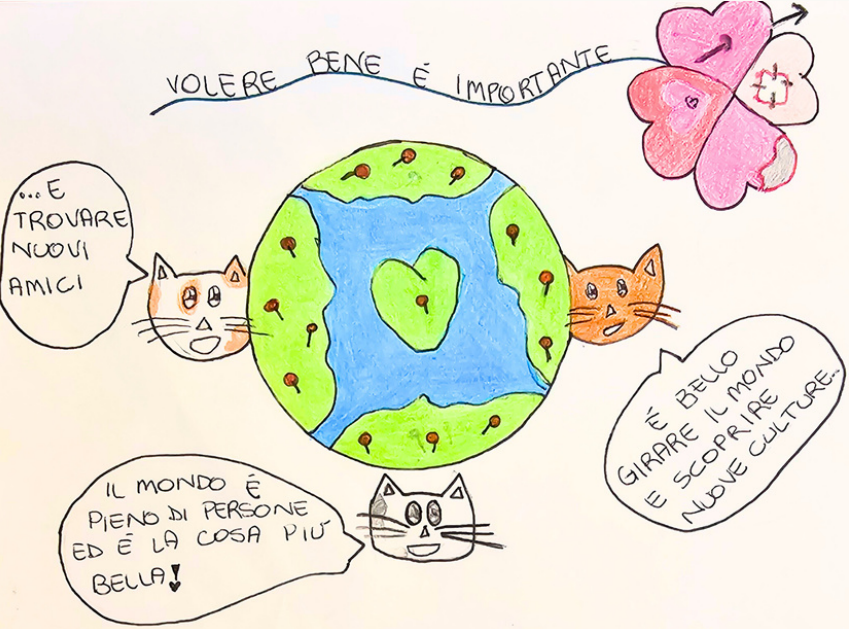 VOLERE BENE É IMPORTANTE
...E
TROVARE
NUOVI
AMICI
É BELLO
GIRARE IL MONDO
E SCOPRIRE
NUOVE CULTURE..
IL MONDO É
PIENO DI PERSONE
ED É LA COSA PIÚ
BELLA!